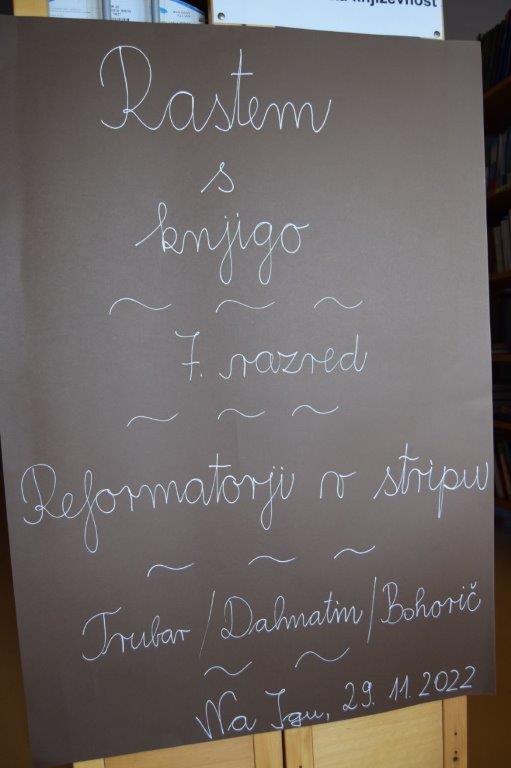 književnost
Rastem
s
knjigo
~ ~ ~
7. razred
~ ~ ~
Reformatorji v stripu
~ ~ ~
Trubar/Dalmatin/Bohorič
~ ~
Na Igu, 29. 11. 2022